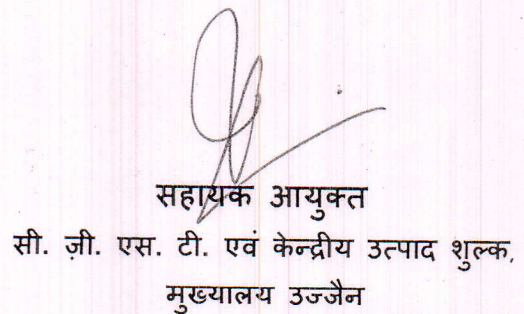 सहायक आयुक्त
सी. ज़ी. एस. टी. एवं केन्द्रीय उत्पाद शुल्क,
मुख्यालय उज्जैन